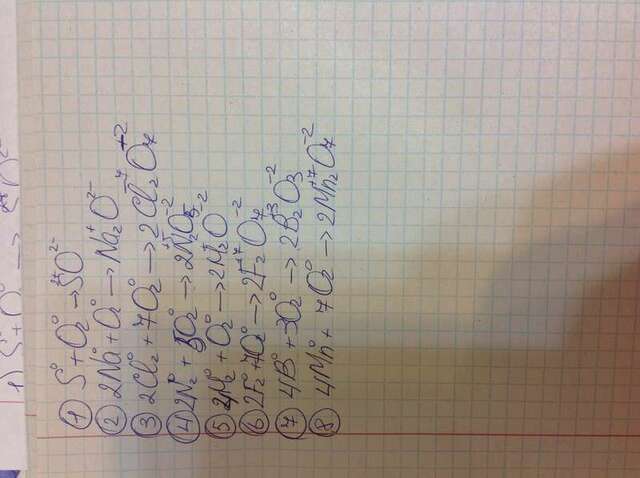 ① S⁰ + O₂⁰ → SO²⁻
② 2Na⁰ + O⁰ → Na₂⁺O²⁻
③ 2Cl₂⁰ + 7O₂⁰ → 2Cl₂⁺⁷O₇⁺²
④ 2N₂⁰ + 5O₂⁰ → 2N₂O₅⁻²
⑤ 2H₂⁰ + O₂⁰ → 2H₂O⁻²
⑥ 2F₂⁰ + 7O₂⁰ → 2F₂⁺⁷O₇⁻²
⑦ 4B⁰ + 3O₂⁰ → 2B₂⁺³O₃⁻²
⑧ 4Mn⁰ + 7O₂⁰ → 2Mn₂⁺⁷O₇⁻²